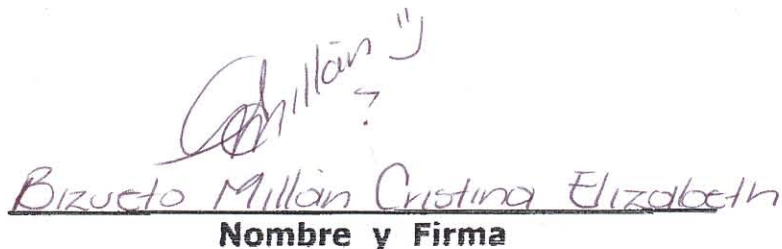 Millán
Bizueto Millán Cristina Elizabeth
Nombre y Firma